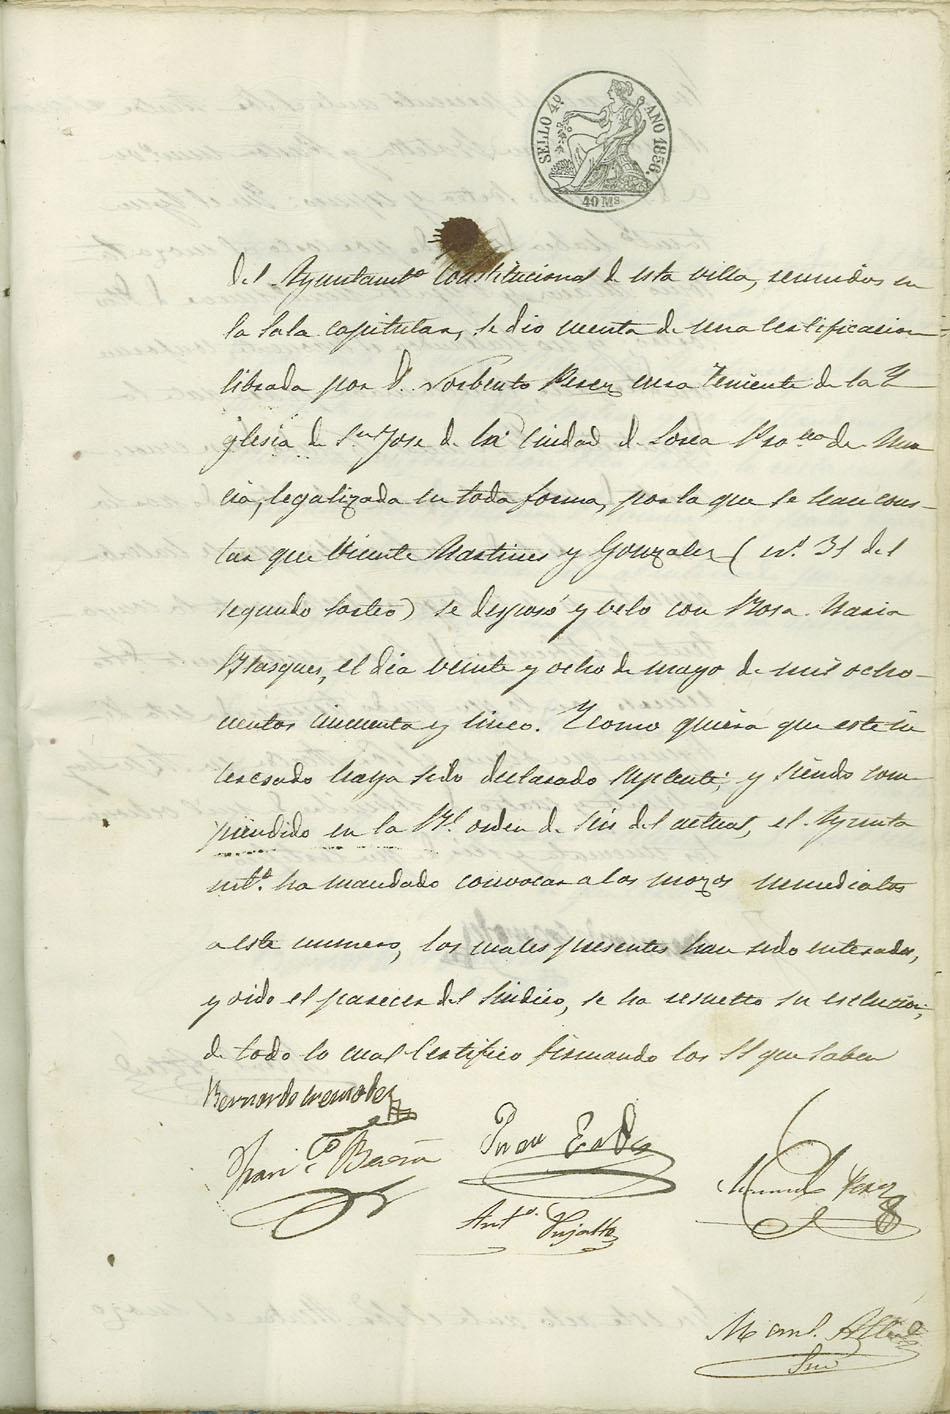 SELLO 4º. AÑO 1856.
40 Ms
del Ayuntamtº Constitucional de esta villa, reunidos en
la Sala capitular, se dio cuenta de una Certificacion
librada por D. Norberto Perez cura Teniente de la Y
glesia de Sn Jose de la Ciudad de Lorca Proca de Mur
cia, legalizada en toda forma, por la que se hace cons-
tar que Vicente Martines y Gonzalez (nº. 31 del
segundo sorteo) se desposó y velo con Rosa Maria
Blasques, el dia veinte y ocho de mayo de mil ocho-
cientos cincuenta y cinco. Y como quiera que este in
teresado haya sido declarado Suplente; y siendo com
prendido en la Rl. orden de seis del actual, el Ayunta
mtº. ha mandado convocar a los mozos inmediatos
a este numero, los cuales presentes han sido enterados,
y oido el parecer del Sindico, se ha resuelto su esclusion,
de todo lo cual Certifico firmando los SS que saben
Bernardo Cremades
Franco Baeza
Anto.
Perez
Manl.
Srio